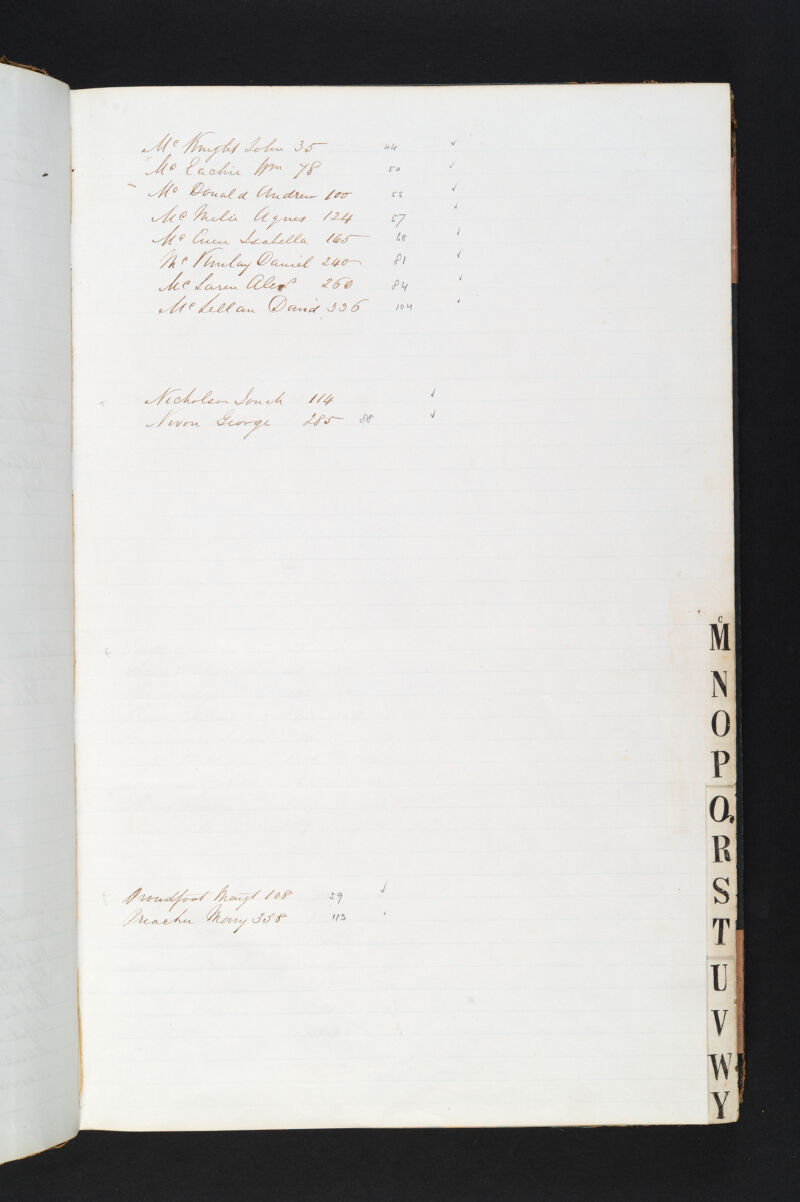 Mc Knight John 35 44 ✓
Mc Eachie Wm 78 50 ✓
Mc Donald Andrew 100 53 ✓
Mc Melie Agnes 124 57 ✓
Mc Ewen Isabella 165 68 ✓
Mc Kinlay Daniel 240 81 ✓
Mc Laren Alexr 260 84 ✓
Mc Lellan David 336 104 ✓
Nicholson 114 ✓
George 285 88 ✓
Proudfoot Margt 108 59 ✓
Preacher Mary 358 113
Mc
N
O
P
Q
R
S
T
U
V
W
Y